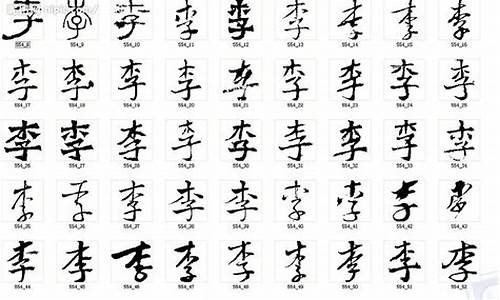 李 李 李 李 李 李 李 李 李
554_8 554_9 554_10 554_11 554_12 554_13 554_14 554_15 554_16
李 李 李 李 李 李 李 李 李
554_17 554_18 554_19 554_20 554_21 554_22 554_23 554_24 554_25
李 李 李 李 李 李 李 李 李
554_26 554_27 554_28 554_29 554_30 554_31 554_32 554_33 554_34
李 李 李 李 李 李 李 李 李
554_35 554_36 554_37 554_38 554_39 554_40 554_41 554_42 554_43
李 李 李 李 李 李 李 李 李
554_44 554_45 554_46 554_47 554_48 554_49 554_50 554_51 554_52